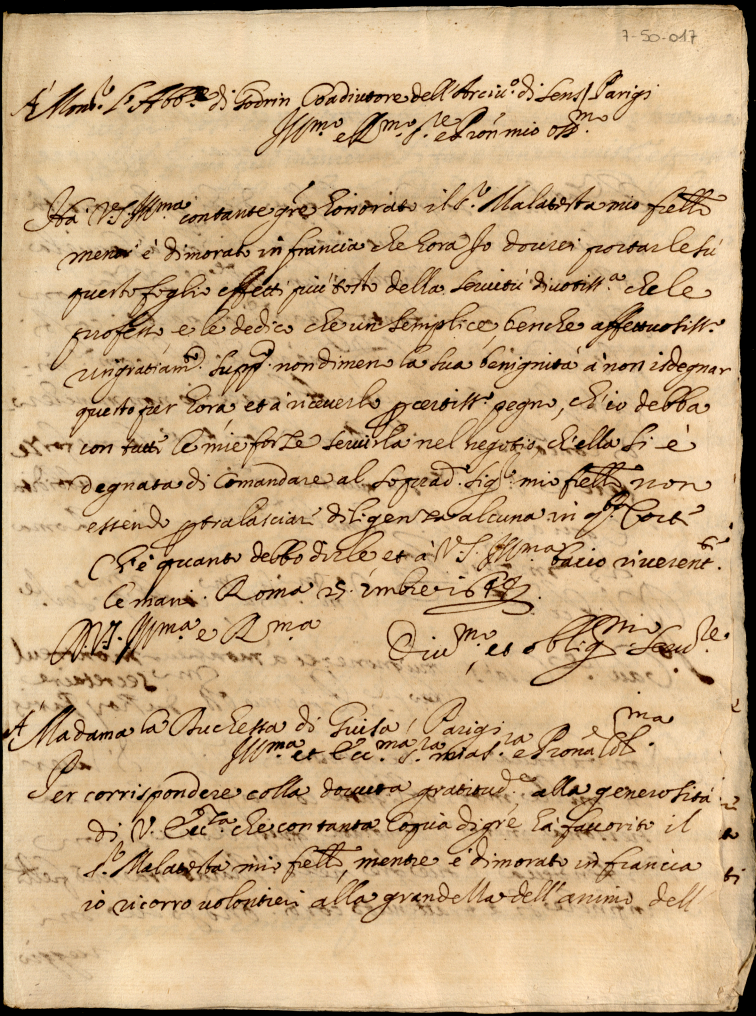 7-50-017
A Mons.r L'Abb.e di Godrin Coadiutore dell'Arciu.o di Sens / Parigi
Ill.mo e R.mo S.re e Pron mio oss.mo
Ha V.S. Ill.ma con tante gre honorato il S.r Malatesta mio frello
mentr'è dimorato in francia che hora Io dourei portarle sù
questo foglio effetti più tosto della seruitù diuotiss.a che le
professo e le dedico che un semplice benche affettuosiss.o
ringratiam.to. Supp.co nondimeno la sua benignità à non isdegnar
questo per hora et à riceuerlo p certiss.o pegno, ch'io debba
con tutte le mie forze seruirla nel negotio, ch'ella si è
degnata di Comandare al soprad.o Sig.r mio frello non
essendo p tralasciar diligenza alcuna in q.ta Corte
Ch'è quanto debbo dirle et à V.S. Ill.ma bacio riuerent.te
le mani. Roma 25. xmbre
D V.S. Ill.ma e R.ma
Diu.mo, et oblig.mo Seru.re
A Madama la Duchessa di Guisa / Parigi
Ill.ma et Ecc.ma S.ra mia S.ra e Prona Col.ma
Per corrispondere colla douuta gratitud.e alla generosità
di V. Ecc.za che con tanta Copia di gre hà fauorito il
S.r Malatesta mio frello, mentre è dimorato in francia
io ricorro uolontieri alla grandezza dell'animo dell